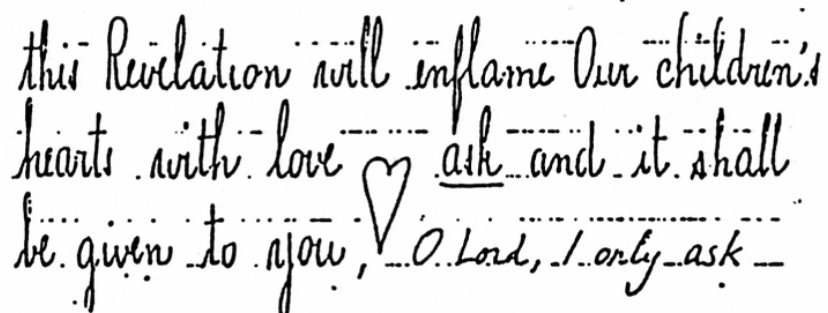 this Revelation will inflame Our children's
hearts with love ask and it shall
be given to you, O Lord, I only ask